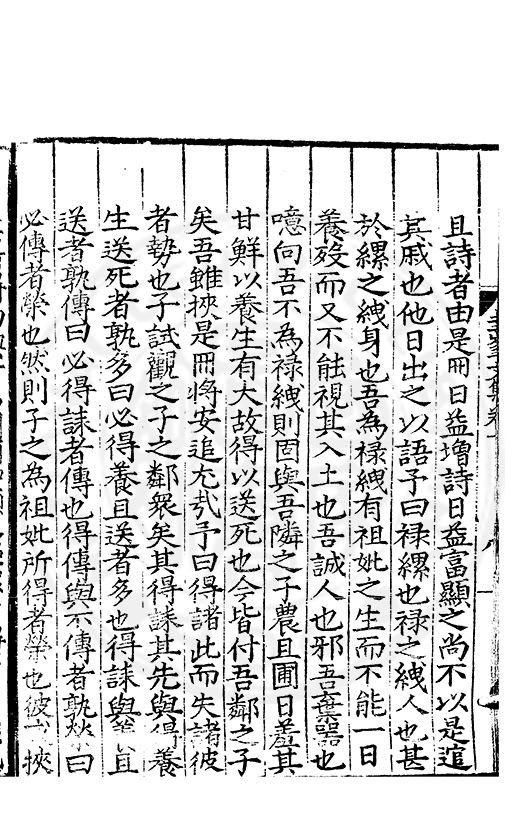 且詩者由是冊日益增詩日益富顯之尚不以是逭
其戚也他日出之以語予曰祿縲也祿之絏人也甚
於縲之絏身也吾為祿絏有祖妣之生而不能一日
養歿而又不能視其入土也吾誠人也邪吾棄器也
噫向吾不為祿絏則固與吾隣之子農且圃日羞其
甘鮮以養生有大故得以送死也今皆付吾鄰之子
矣吾雖挾是冊將安追尤㢤予曰得諸此而失諸彼
者勢也子試觀之子之鄰衆矣其得誄其先與得養
生送死者孰多曰必得養且送者多也得誄與養且
送者孰傳曰必得誄者傳也得傳與不傳者孰榮曰
必傳者榮也然則子之為祖妣所得者榮也彼挾